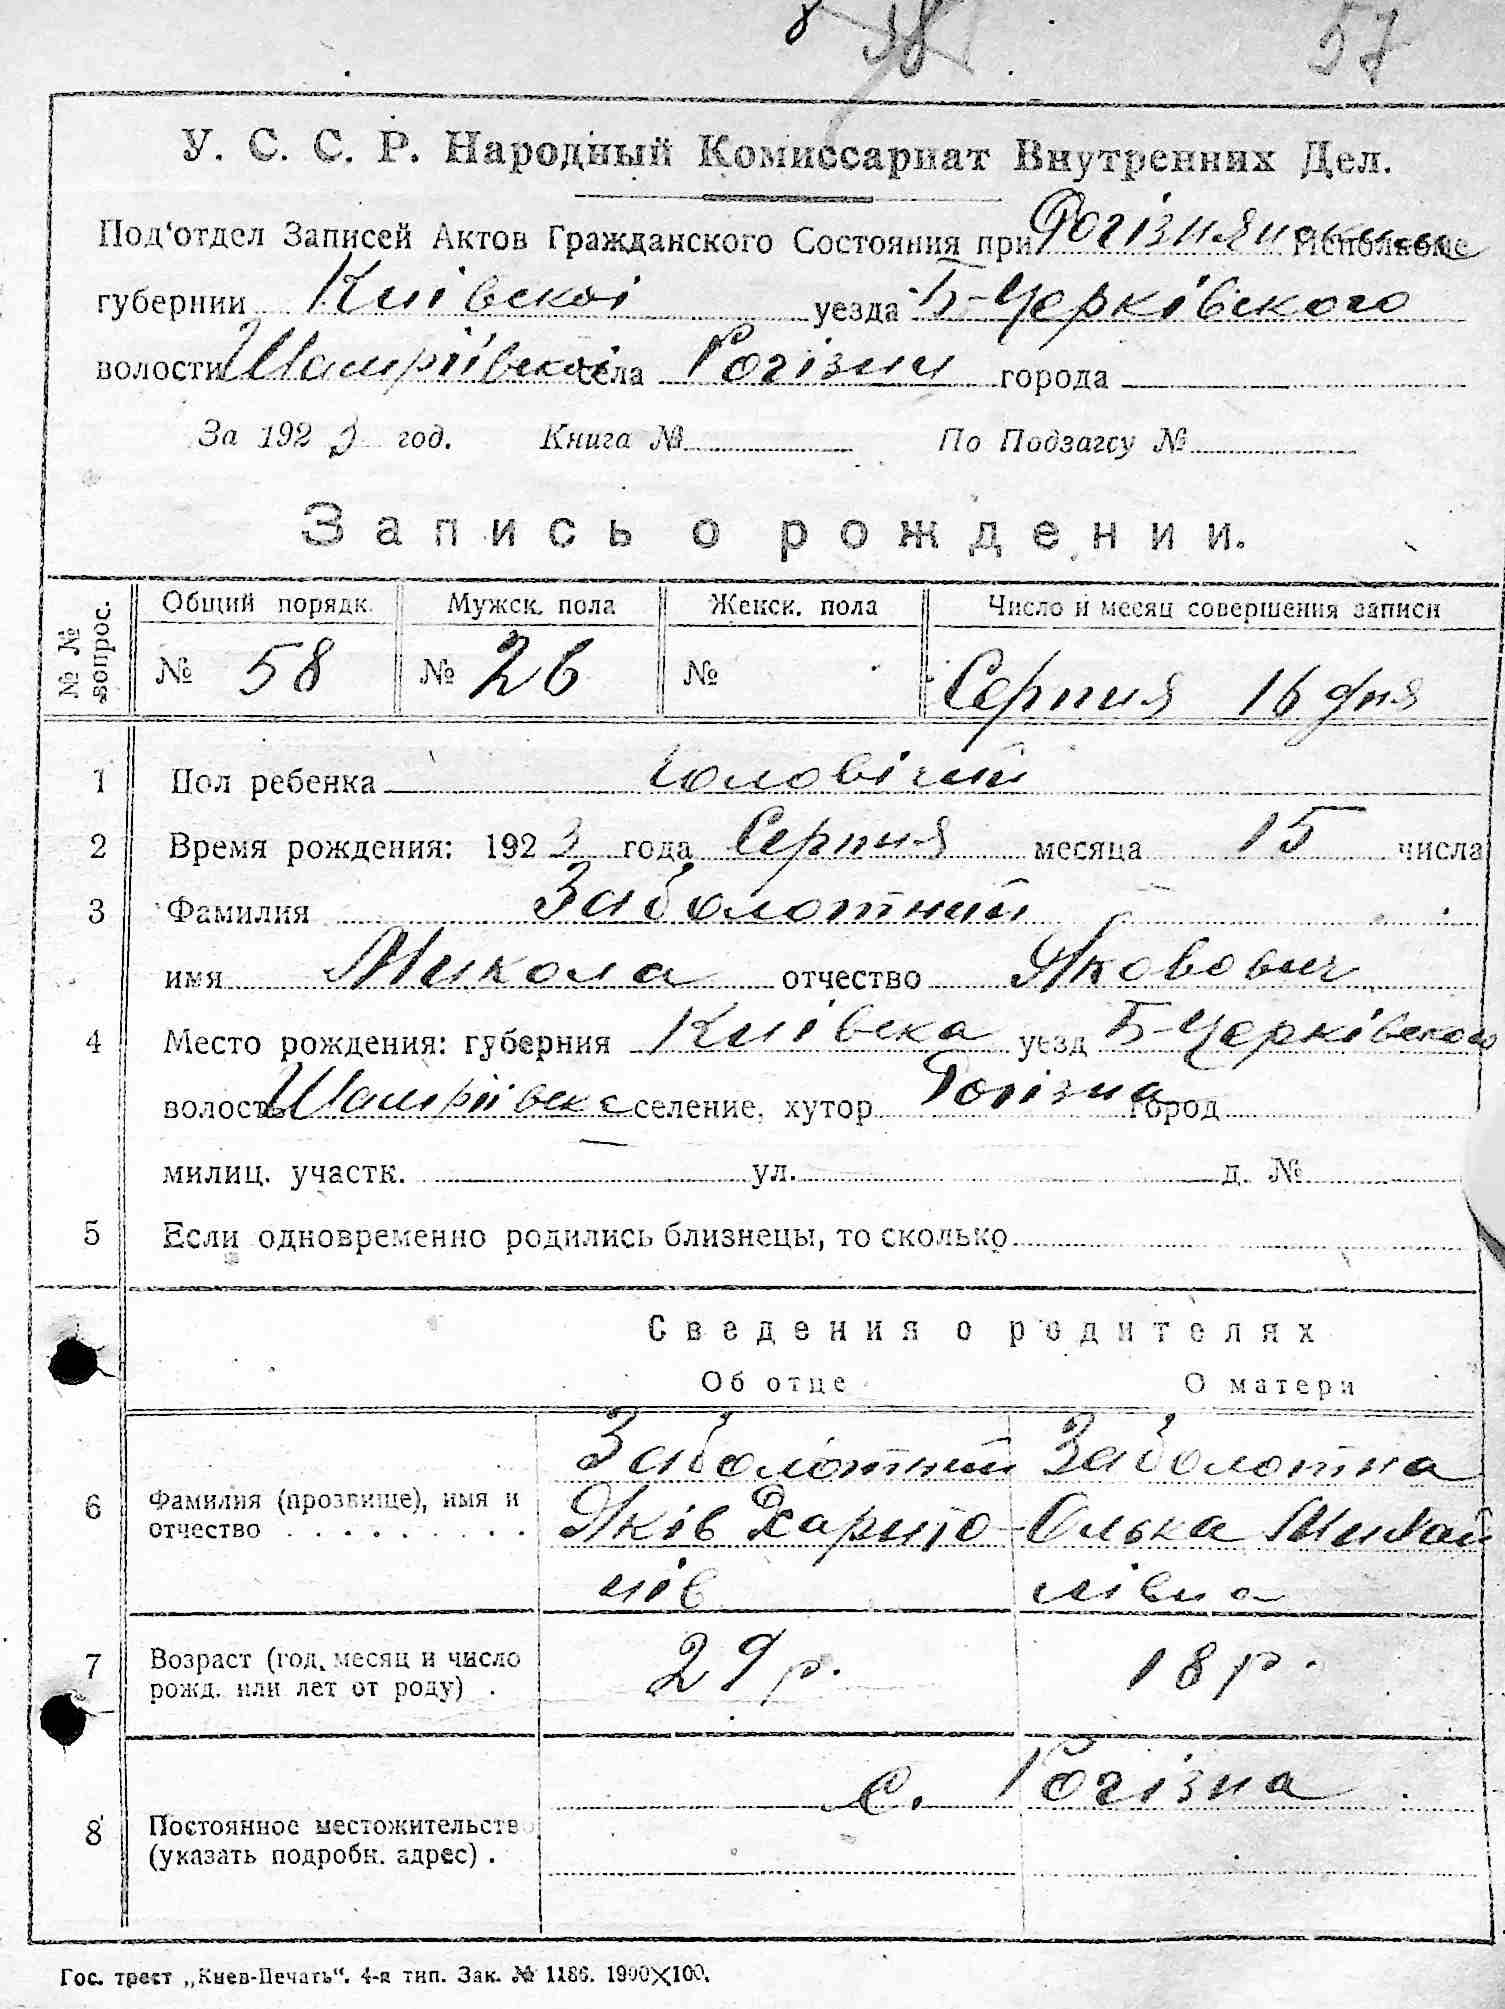 57
У. С. С. Р. Народный Комиссариат Внутренних Дел.
Под'отдел Записей Актов Гражданского Состояния при Рогізнянским Исполкоме
губернии Киівскоі уезда Б-Черківского
волости Шамріівскоі села Рогізни города
За 1923 год. Книга № По Подзагсу №
Запись о рождении.
№ № вопрос. Общий порядк. Мужск. пола Женск. пола Число и месяц совершения записи
№ 58 № 26 № Серпня 16 дня
1 Пол ребенка Чоловічий
2 Время рождения: 1923 года Серпня месяца 15 числа
3 Фамилия Заболотний
имя Микола отчество Яковович
4 Место рождения: губерния Киівска уезд Б-Черківского
волость Шамріівска селение, хутор Рогізна город
милиц. участк. ул. д. №
5 Если одновременно родились близнецы, то сколько
Сведения о родителях
Об отце О матери
Заболотний Заболотна
6 Фамилия (прозвище), имя и отчество Яків Харито- Олька Михай
нів лівна
7 Возраст (год, месяц и число рожд. или лет от роду) . 29 р. 18 р.
с. Рогізна
8 Постоянное местожительство (указать подробн. адрес) .
Гос. трест „Киев-Печать“. 4-я тип. Зак. № 1186. 1900×100.